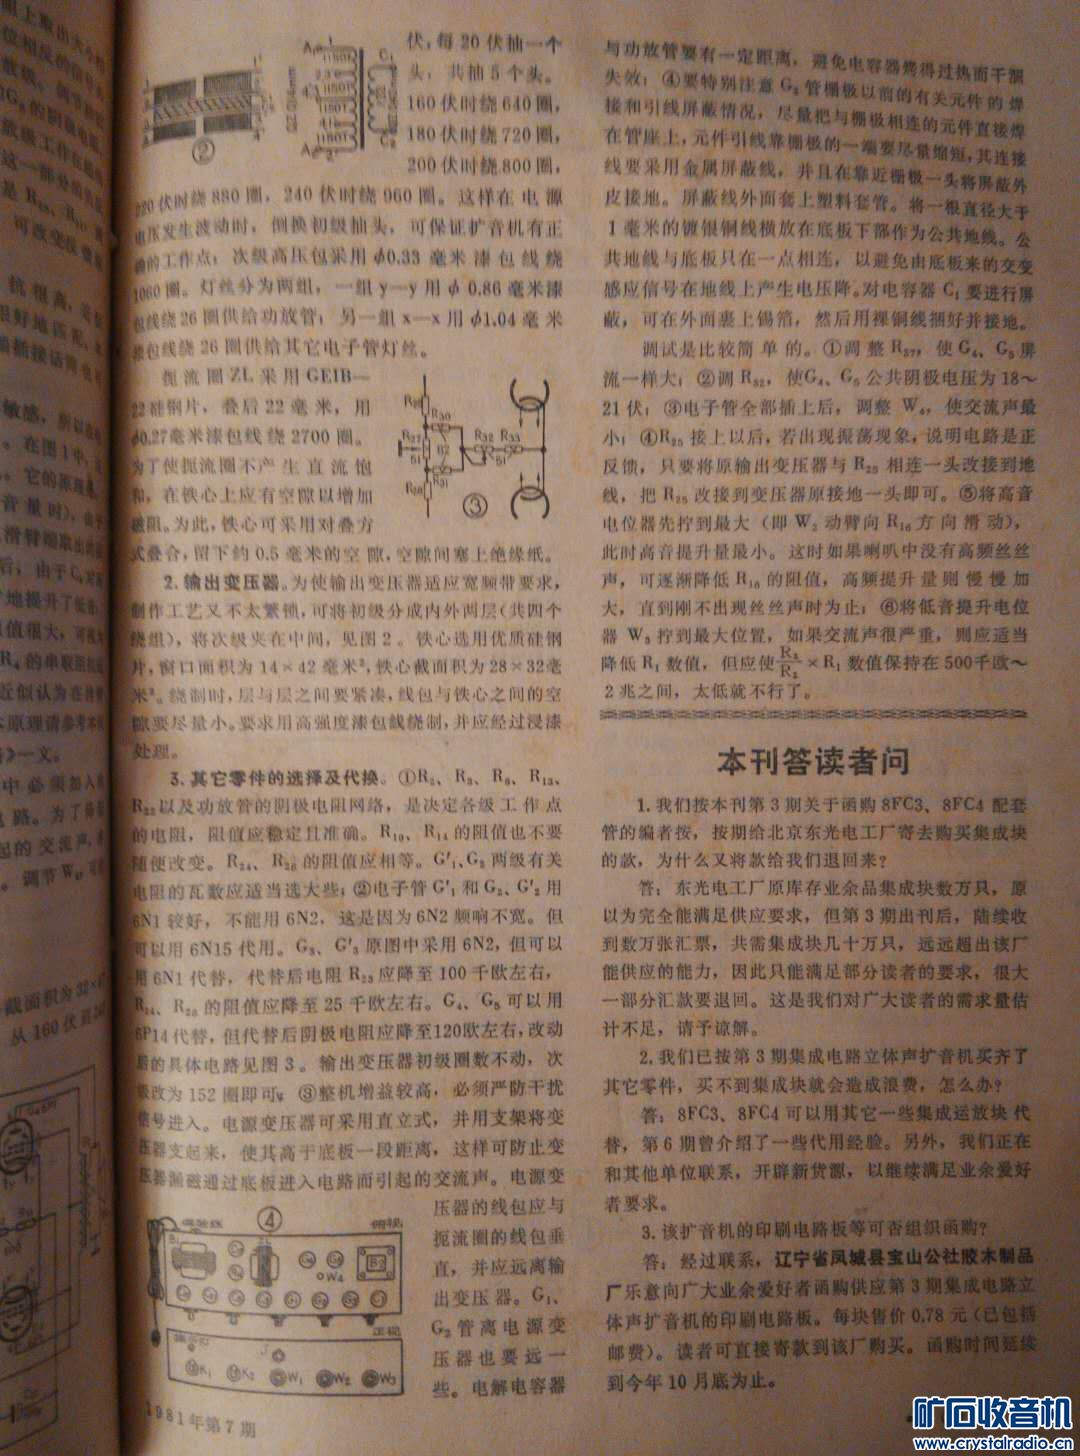 伏,每20伏抽一个
头,共抽5个头。
160伏时绕640圈,
180伏时绕720圈,
200伏时绕800圈,
220伏时绕880圈,240伏时绕960圈。这样在电源
电压发生波动时,倒换初级抽头,可保证扩音机有正
确的工作点;次级高压包采用φ0.33毫米漆包线绕
1060圈。灯丝分为两组,一组y—y用φ0.86毫米漆
包线绕26圈供给功放管;另一组x—x用φ1.04毫米
漆包线绕26圈供给其它电子管灯丝。
扼流圈ZL采用GEIB—
22硅钢片,叠后22毫米,用
φ0.27毫米漆包线绕2700圈。
为了使扼流圈不产生直流饱
和,在铁心上应有空隙以增加
磁阻。为此,铁心可采用对叠方
式叠合,留下约0.5毫米的空隙,空隙间塞上绝缘纸。
2.输出变压器。为使输出变压器适应宽频带要求,
制作工艺又不太繁锁,可将初级分成内外两层(共四个
绕组),将次级夹在中间,见图2。铁心选用优质硅钢
片,窗口面积为14×42毫米²,铁心截面积为28×32毫
米²。绕制时,层与层之间要紧凑,线包与铁心之间的空
隙要尽量小。要求用高强度漆包线绕制,并应经过浸漆
处理。
3.其它零件的选择及代换。①R₅、R₈、R₉、R₁₃、
R₂₂以及功放管的阴极电阻网络,是决定各级工作点
的电阻,阻值应稳定且准确。R₁₀、R₁₄的阻值也不要
随便改变。R₂₄、R₂₆的阻值应相等。G′₁、G₂两级有关
电阻的瓦数应适当选大些;②电子管G′₁和G₂、G′₂用
6N1较好,不能用6N2,这是因为6N2频响不宽。但
可以用6N15代用。G₃、G′₃原图中采用6N2,但可以
用6N1代替,代替后电阻R₂₃应降至100千欧左右,
R₂₄、R₂₆的阻值应降至25千欧左右。G₄、G₅可以用
6P14代替,但代替后阴极电阻应降至120欧左右,改动
后的具体电路见图3。输出变压器初级圈数不动,次
级改为152圈即可。③整机增益较高,必须严防干扰
信号进入。电源变压器可采用直立式,并用支架将变
压器支起来,使其高于底板一段距离,这样可防止变
压器漏磁通过底板进入电路而引起的交流声。电源变
压器的线包应与
扼流圈的线包垂
直,并应远离输
出变压器。G₁、
G₂管离电源变
压器也要远一
些。电解电容器
②
③
R₃₀
R₃₁
R₃₂ R₃₃
④
俯视
正视
W₄
K₁ K₂ J W₁ W₂ W₃
1981年第7期
与功放管要有一定距离,避免电容器烤得过热而干涸
失效;④要特别注意G₂管栅极以前的有关元件的焊
接和引线屏蔽情况,尽量把与栅极相连的元件直接焊
在管座上,元件引线靠栅极的一端要尽量缩短,其连接
线要采用金属屏蔽线,并且在靠近栅极一头将屏蔽外
皮接地。屏蔽线外面套上塑料套管。将一根直径大于
1毫米的镀银铜线横放在底板下部作为公共地线。公
共地线与底板只在一点相连,以避免由底板来的交变
感应信号在地线上产生电压降。对电容器C₁要进行屏
蔽,可在外面裹上锡箔,然后用裸铜线捆好并接地。
调试是比较简单的。①调整R₂₇,使G₄、G₅屏
流一样大;②调R₃₂,使G₄、G₅公共阴极电压为18~
21伏;③电子管全部插上后,调整W₄,使交流声最
小;④R₂₅接上以后,若出现振荡现象,说明电路是正
反馈,只要将原输出变压器与R₂₅相连一头改接到地
线,把R₂₅改接到变压器原接地一头即可。⑤将高音
电位器先拧到最大(即W₂动臂向R₁₆方向滑动),
此时高音提升量最小。这时如果喇叭中没有高频丝丝
声,可逐渐降低R₁₆的阻值,高频提升量则慢慢加
大,直到刚不出现丝丝声时为止;⑥将低音提升电位
器W₃拧到最大位置,如果交流声很严重,则应适当
降低R₁数值,但应使×R₁数值保持在500千欧~
2兆之间,太低就不行了。
本刊答读者问
1.我们按本刊第3期关于函购8FC3、8FC4配套
管的编者按,按期给北京东光电工厂寄去购买集成块
的款,为什么又将款给我们退回来?
答:东光电工厂原库存业余品集成块数万只,原
以为完全能满足供应要求,但第3期出刊后,陆续收
到数万张汇票,共需集成块几十万只,远远超出该厂
能供应的能力,因此只能满足部分读者的要求,很大
一部分汇款要退回。这是我们对广大读者的需求量估
计不足,请予谅解。
2.我们已按第3期集成电路立体声扩音机买齐了
其它零件,买不到集成块就会造成浪费,怎么办?
答:8FC3、8FC4可以用其它一些集成运放块代
替,第6期曾介绍了一些代用经验。另外,我们正在
和其他单位联系,开辟新货源,以继续满足业余爱好
者要求。
3.该扩音机的印刷电路板等可否组织函购?
答:经过联系,辽宁省凤城县宝山公社胶木制品
厂乐意向广大业余爱好者函购供应第3期集成电路立
体声扩音机的印刷电路板。每块售价0.78元(已包括
邮费)。读者可直接寄款到该厂购买。函购时间延续
到今年10月底为止。
矿石收音机
www.crystalradio.cn